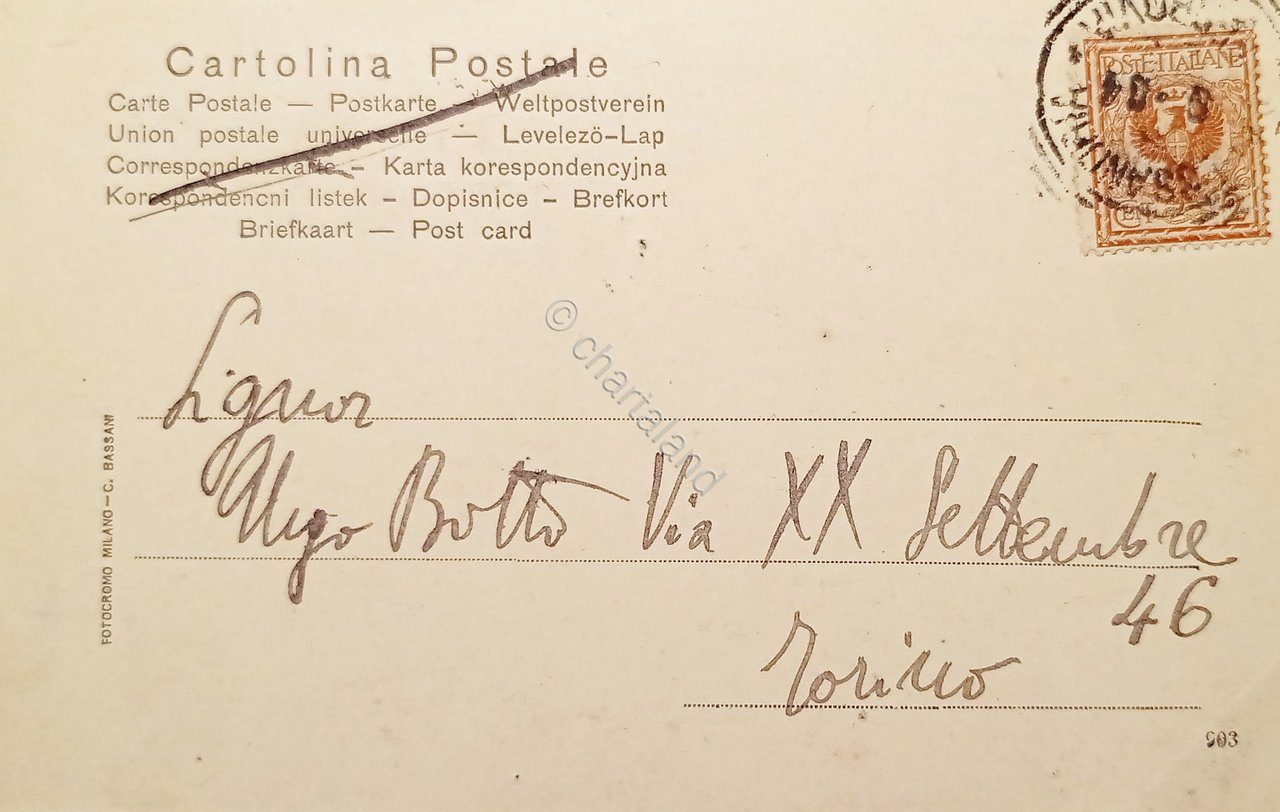 Cartolina Postale
Carte Postale — Postkarte — Weltpostverein
Union postale universelle — Levelezö-Lap
Correspondenzkarte – Karta korespondencyjna
Korespondencni listek – Dopisnice – Brefkort
Briefkaart — Post card
POSTE ITALIANE
CEN. 2
© chartaland
Signor
Ugo Botto Via XX Settembre
46
Torino
FOTOCROMO MILANO – C. BASSANI
903